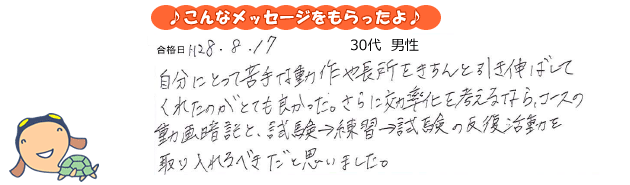 ♪こんなメッセージをもらったよ♪
合格日 H28.8.17 30代 男性
自分にとって苦手な動作や長所をきちんと引き伸ばして
くれたのがとても良かった。さらに効率化を考えるなら、コースの
動画暗記と、試験→練習→試験の反復活動を
取り入れるべきだと思いました。